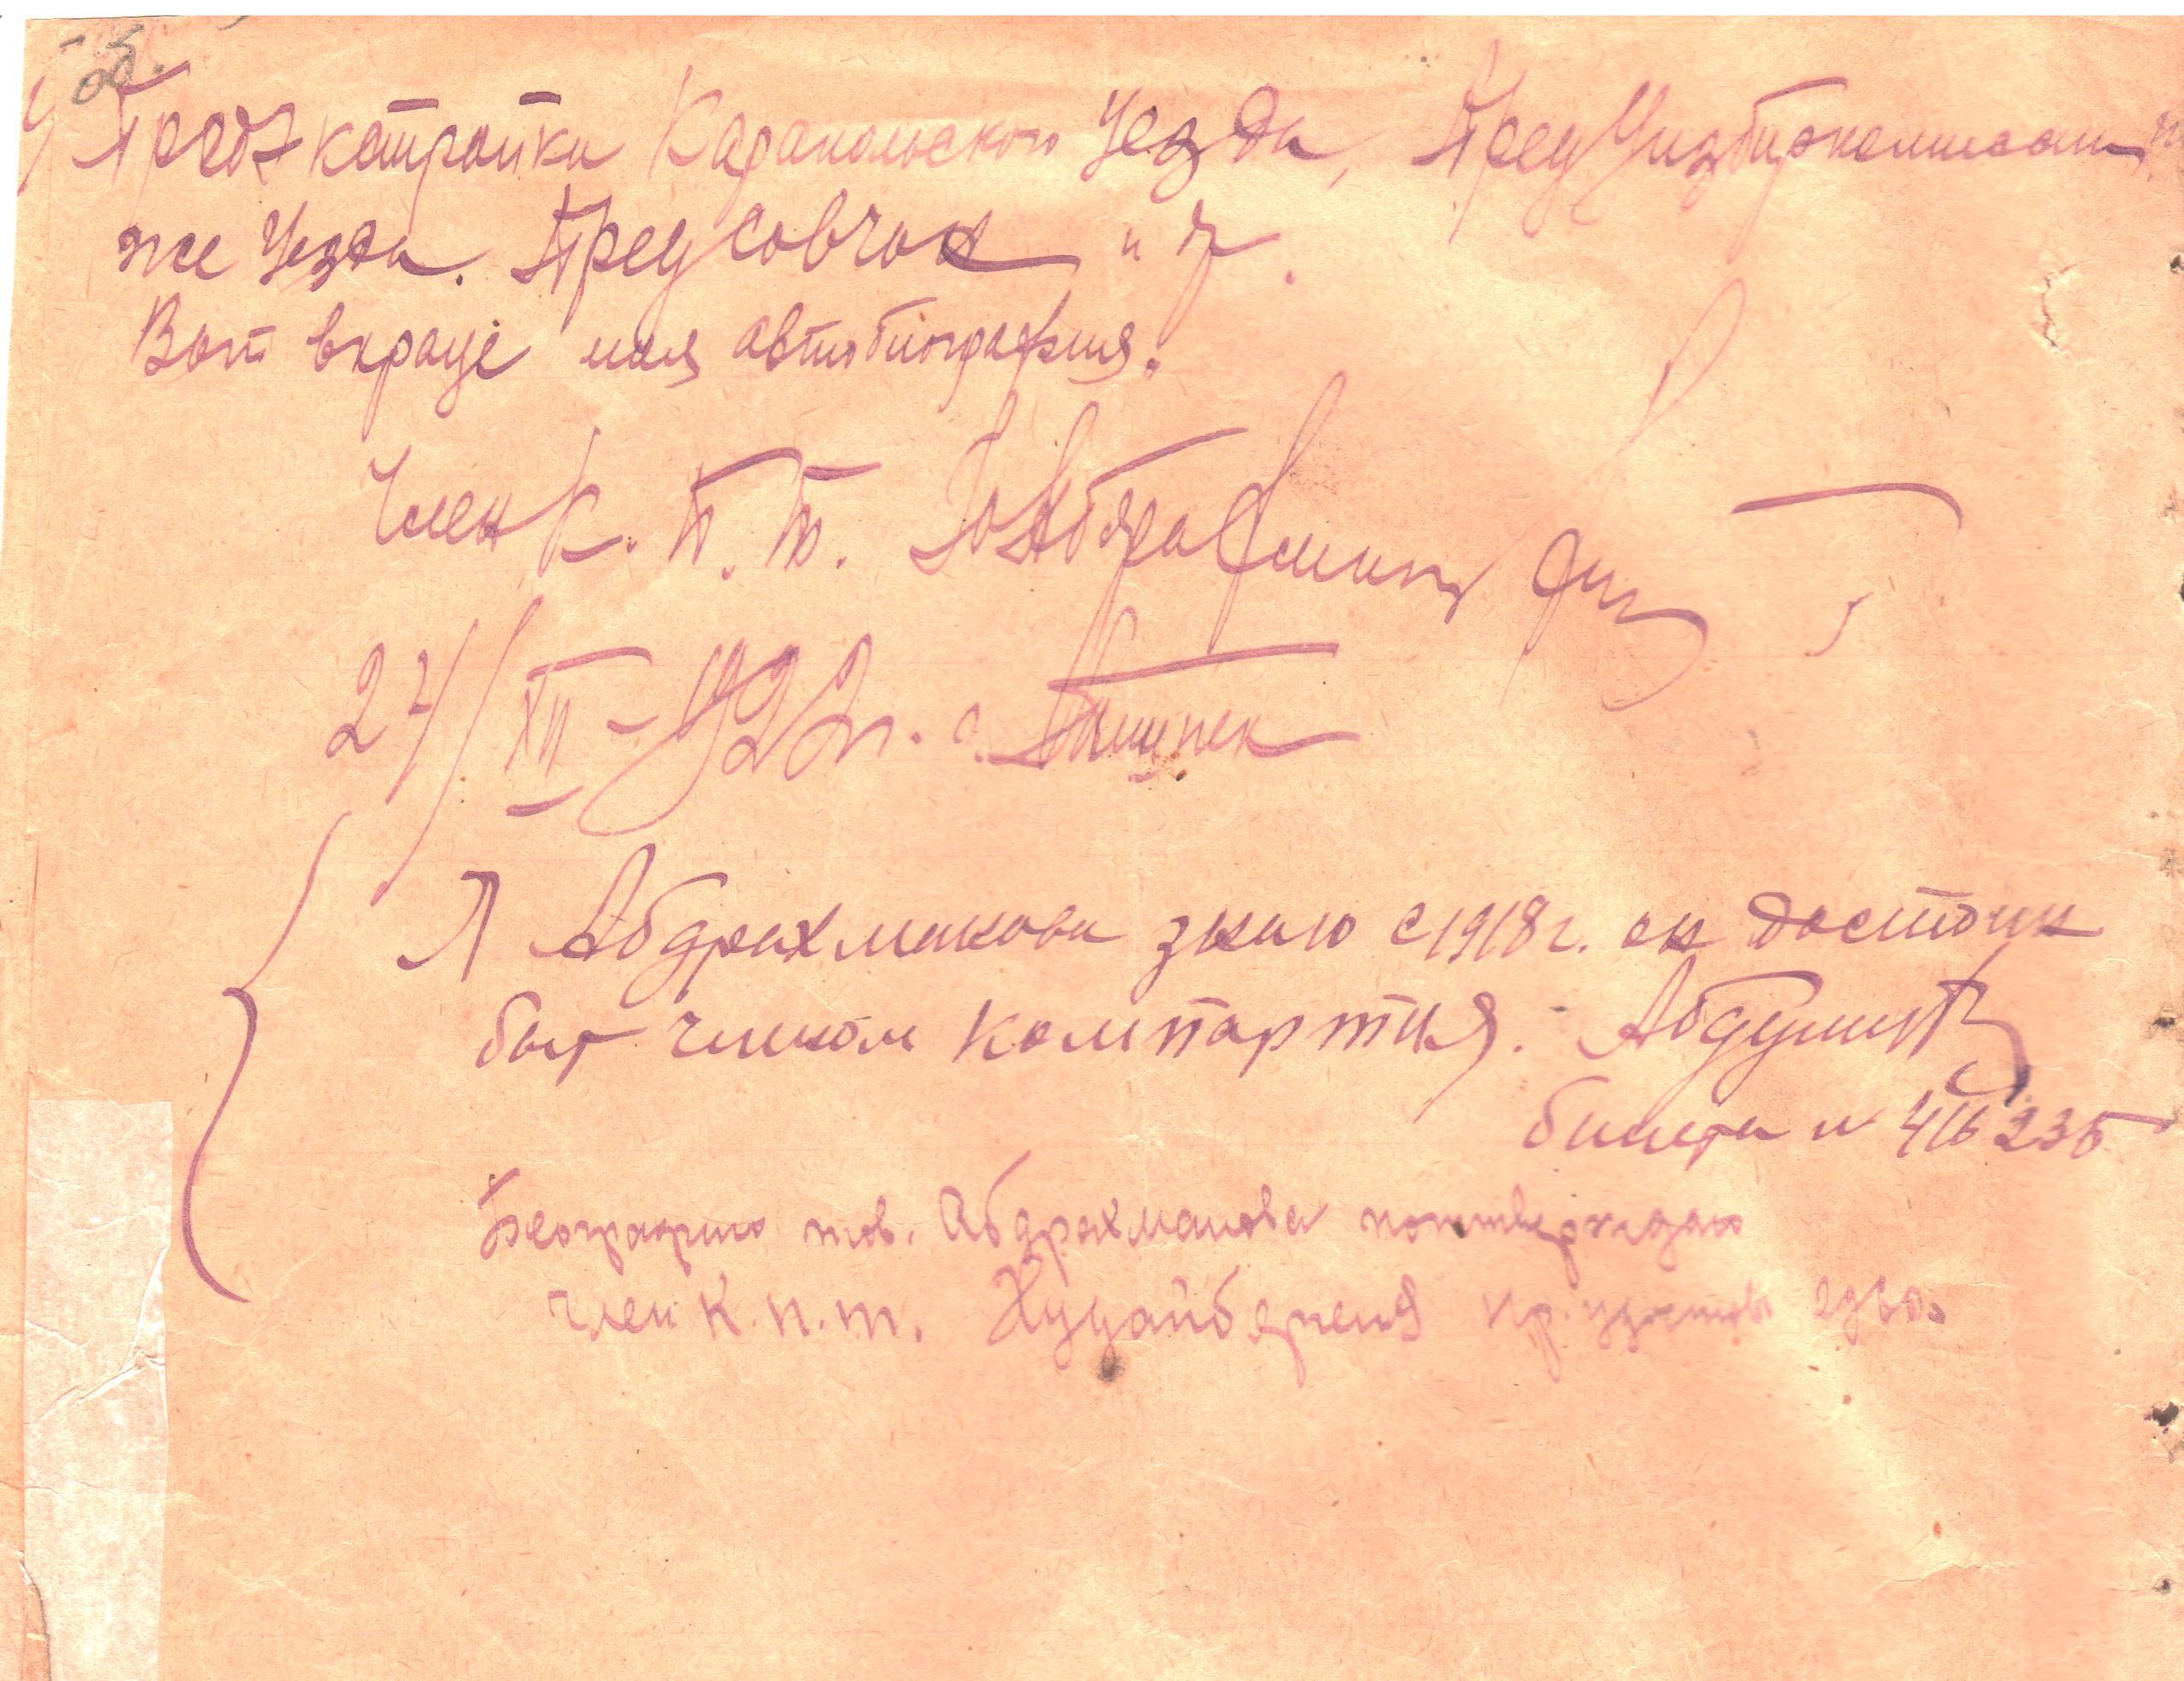 об.
Пред Экстройки Каракольского Уезда, Пред Уизбиркомиссии
же Уезда. Предсовчк и т
Вот вкраце моя автобиография.
Член К. П. Т. Ю Абдрахманов
24/XII – 1922 г. г. Пишпек
Я Абдрахманова знаю с 1918 г. он достоин
быт членом компартия.
билета № 416235
Беографию тов. Абдрахманова поттверждаю
член к. п. т. Худайберген